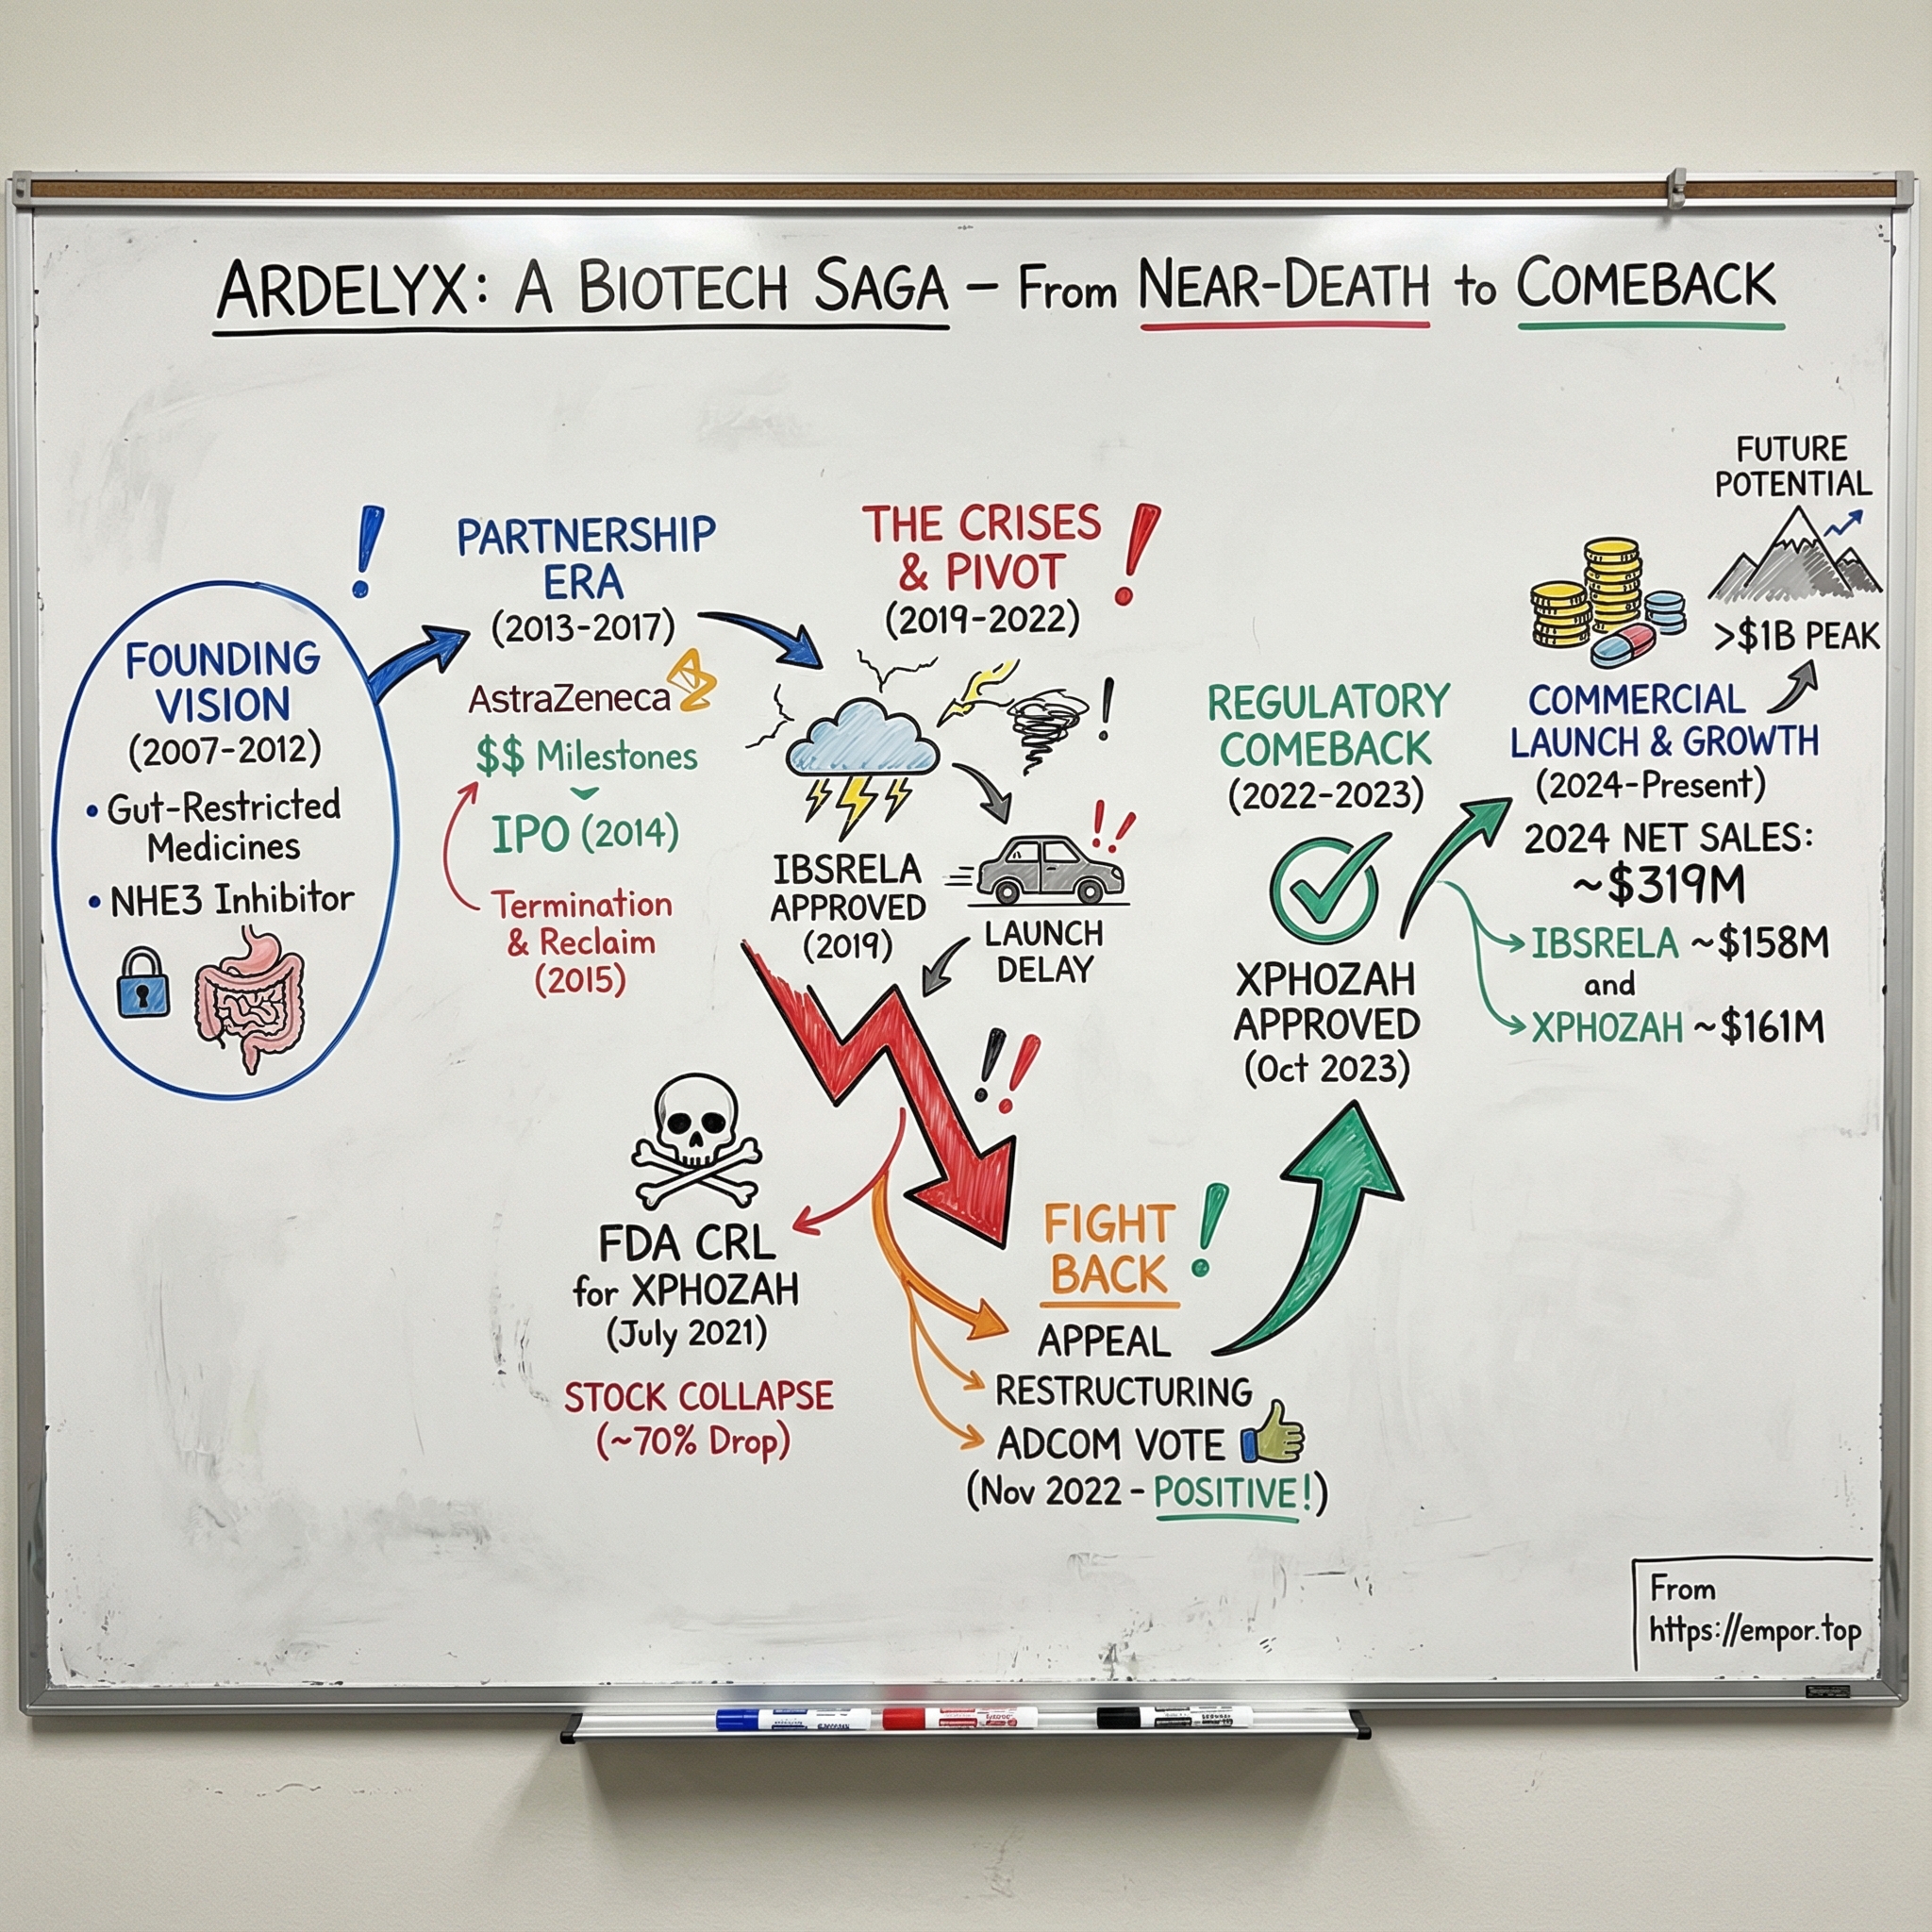 ARDELYX: A BIOTECH SAGA – From NEAR-DEATH to COMEBACK
FOUNDING
VISION
(2007-2012)
• Gut-Restricted
Medicines
• NHE3 Inhibitor
PARTNERSHIP
ERA
(2013-2017)
AstraZeneca
$$ Milestones
IPO (2014)
Termination
& Reclaim
(2015)
THE CRISES
& PIVOT
(2019-2022)
!
!
!
IBSRELA
APPROVED
(2019)
!!
LAUNCH
DELAY
!!
FDA CRL
for XPHOZAH
(July 2021)
STOCK COLLAPSE
(~70% Drop)
FIGHT
BACK
!
APPEAL
RESTRUCTURING
ADCOM VOTE
(Nov 2022 - POSITIVE!)
REGULATORY
COMEBACK
(2022-2023)
XPHOZAH
APPROVED
(Oct 2023)
COMMERCIAL
LAUNCH & GROWTH
(2024-Present)
2024 NET SALES:
~$319M
IBSRELA ~$158M
and
XPHOZAH ~$161M
FUTURE
POTENTIAL
>$1B PEAK
From
https://empor.top